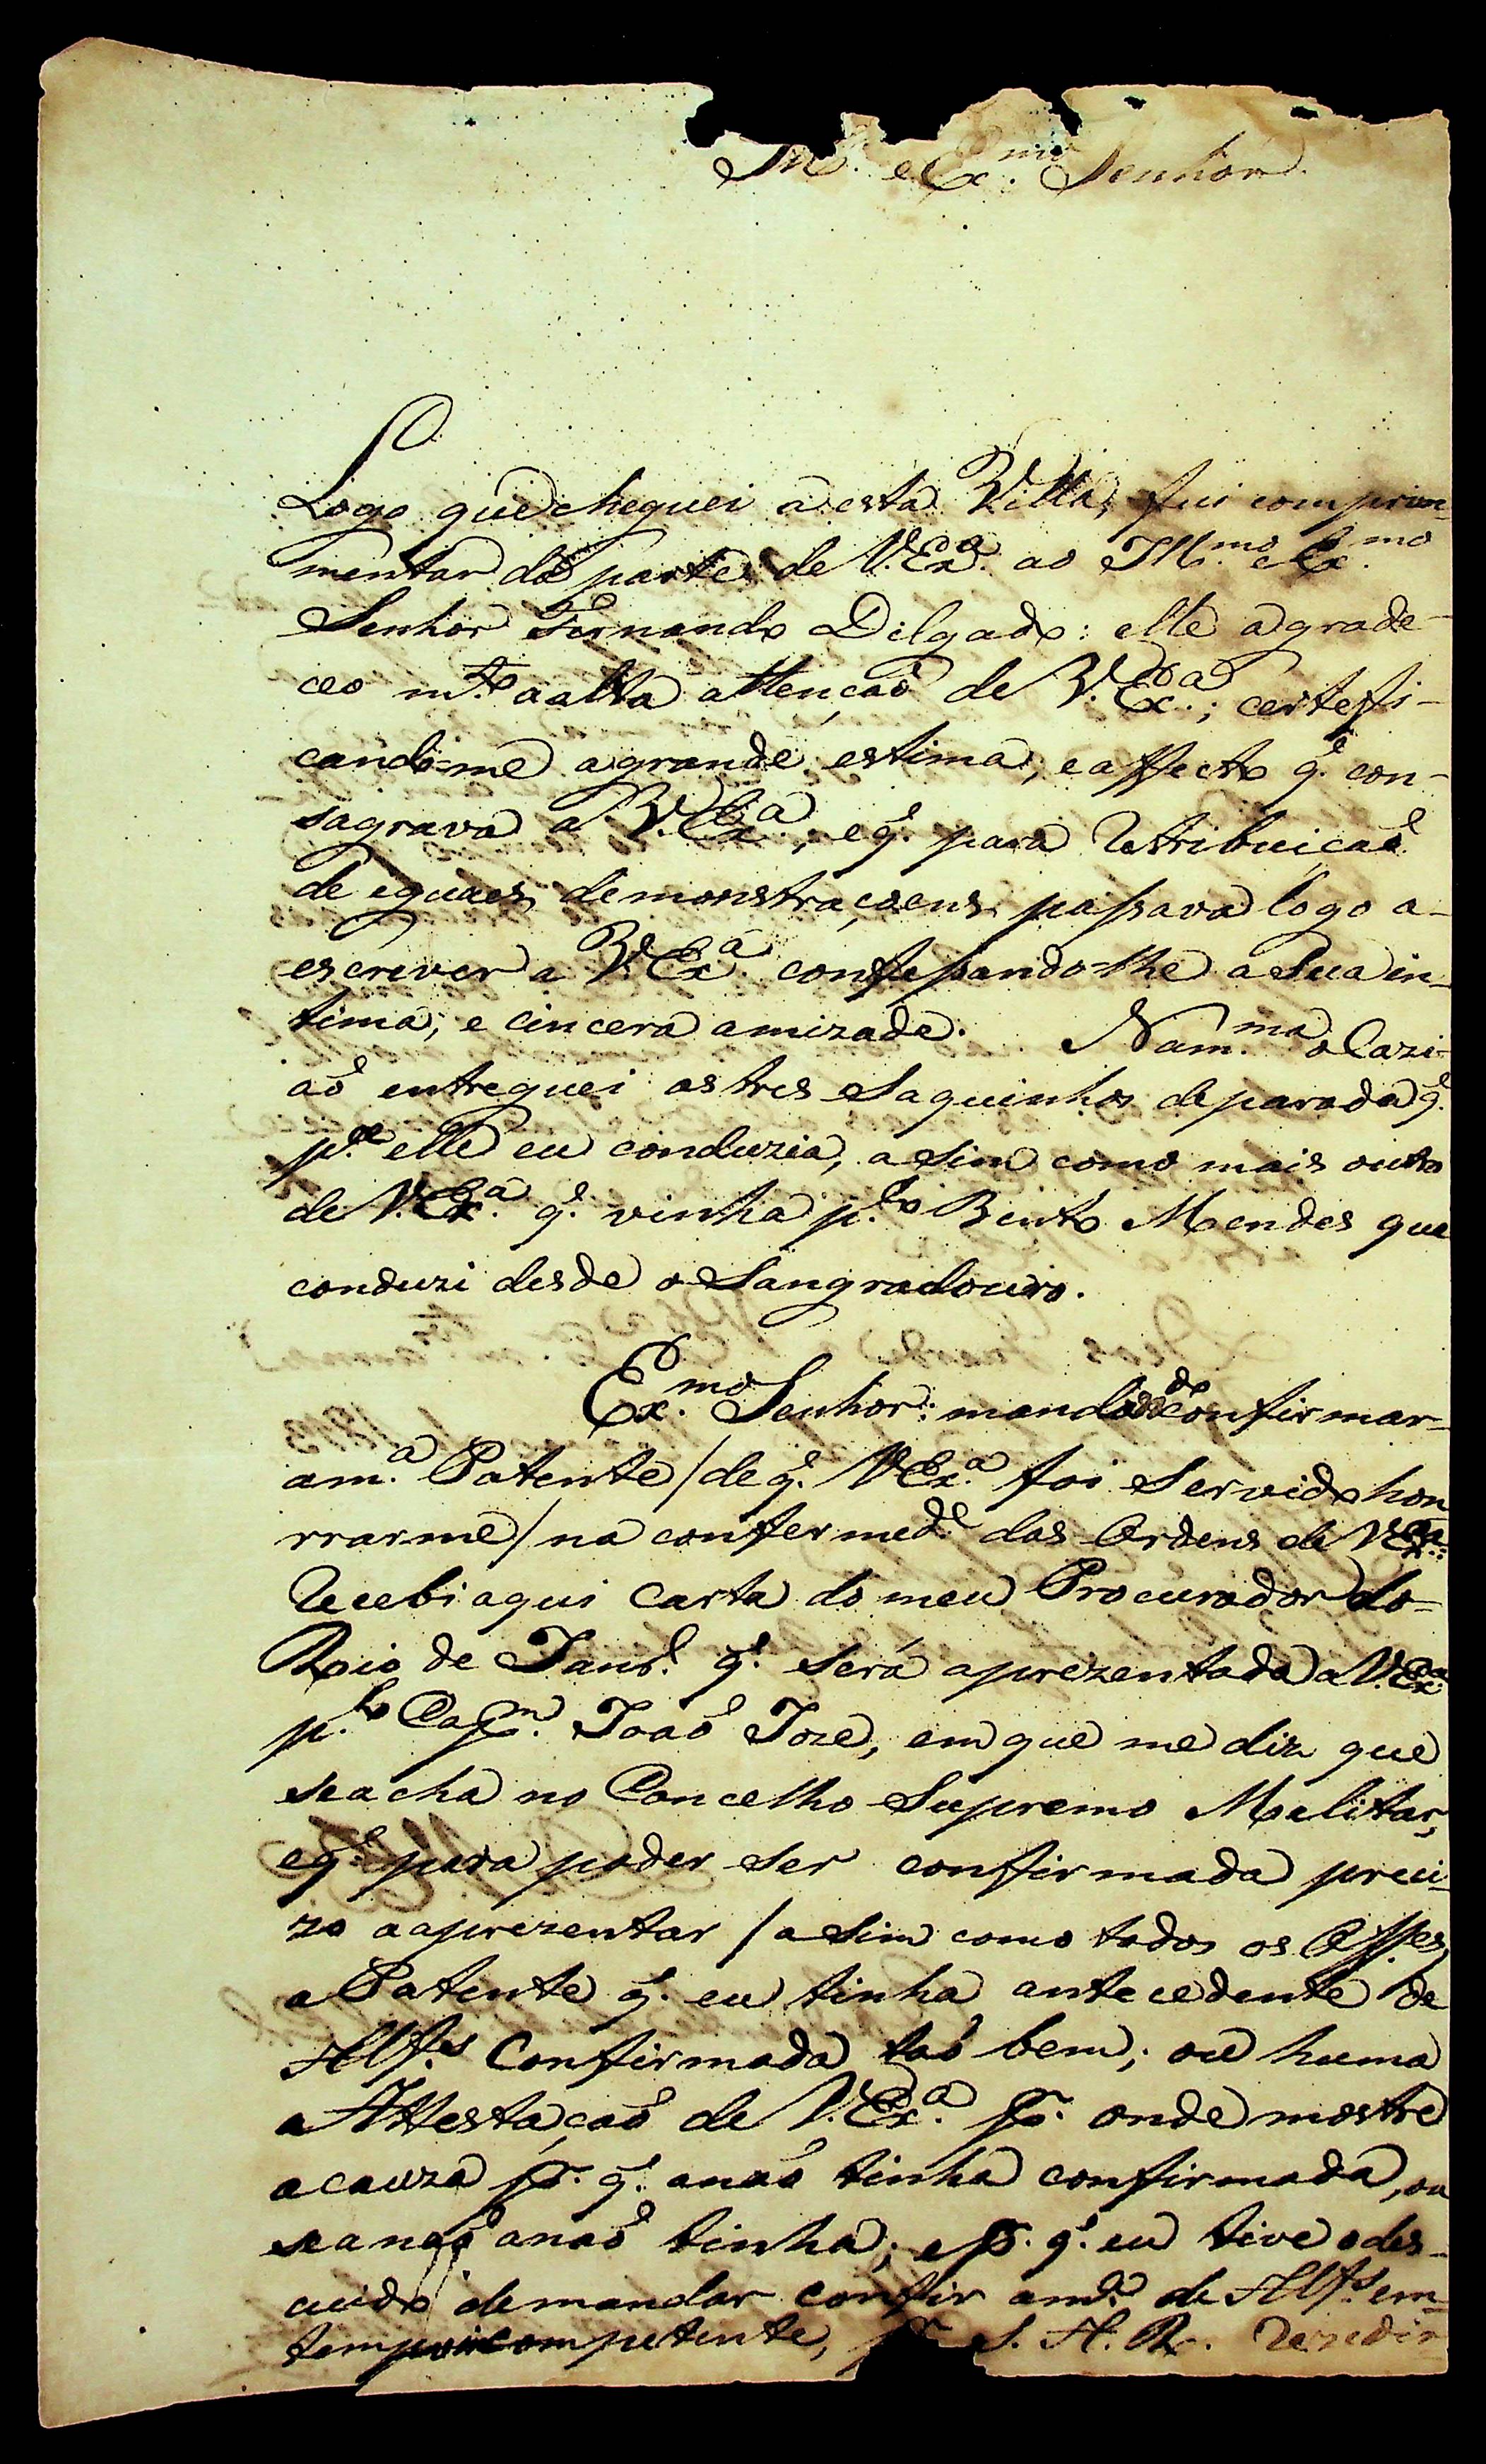 Ill.mo e Ex.mo Senhor.
Logo que cheguei a esta Villa, fui comprim-
mentar da parte de V. Ex.a ao Ill.mo e Ex.mo
Senhor Fernando Delgado: elle agrade-
ceo m.to a alta attenção de V. Ex.a; certefi-
cando-me a grande estima, e affecto q.e con-
sagrava a V. Ex.a, e q.e para retribuicaõ
de eguaes demonstraçoens passava logo a-
escrever a V. Ex.a confessando-lhe a Sua in-
tima, e cincera amizade. Nam.ma o Cazi-
aõ entreguei os tres Saquinhos de parada q.e
p.a elle eu conduzia, a Sim como mais outro
de V. Ex.a q.e vinha p.lo Bento Mendes que
conduzi desde o Sangradouro.
Ex.mo Senhor: mandado confirmar-
a m.a Patente / de q.e V. Ex.a foi Servido hon
rrarme / na confermed.e das Ordens de V. Ex.a:
Recebi aqui Carta do meu Procurador do-
Rio de Janr.o q.e será aprezentada a V. Ex.a
p.lo Cap.m Joaõ Joze, em que me diz que
se acha no Concelho Supremo Melitar,
e q.e para poder ser confirmada preci-
zo a aprezentar / a Sim como todos os Off.es,
a Patente q.e eu tinha antecedente de
Alf.es Confirmada taõ bem; ou huma
a Attestaçaõ de V. Ex.a p.r onde mostre
a cauza p.r q.e a naõ tinha confirmada, ou
se a naõ a naõ tinha; e p.r q.e eu tive o des-
cuido de mandar confir a md.a de Alf.es em-
tempo competente, S. A. R. rezedir-